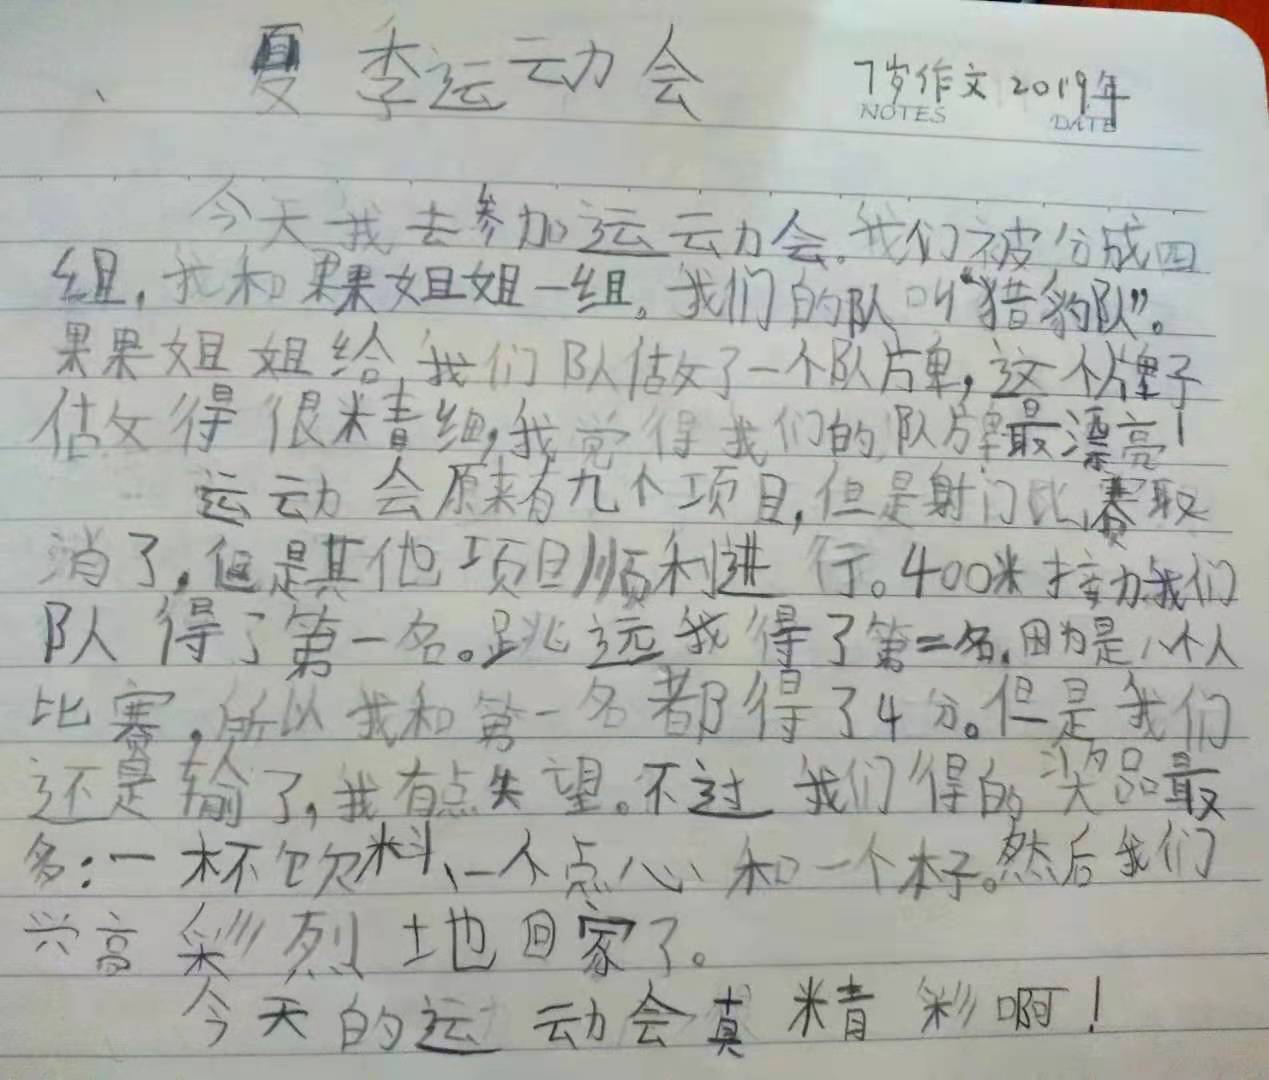 夏季运动会
7岁作文 2019年
NOTES
DATE
今天我去参加运动会。我们被分成四
组，我和果果姐姐一组。我们的队叫“猎豹队”。
果果姐姐给我们队做了一个队牌，这个牌子
做得很精细，我觉得我们的队牌最漂亮！
运动会原来有九个项目，但是射门比赛取
消了，但是其他项目顺利进行。400米接力我们
队得了第一名。跳远我得了第二名，因为是八个人
比赛，所以我和第一名都得了4分。但是我们
还是输了，我有点失望。不过我们得的奖品最
多：一杯饮料、一个点心和一个本子。然后我们
兴高彩烈地回家了。
今天的运动会真精彩啊！